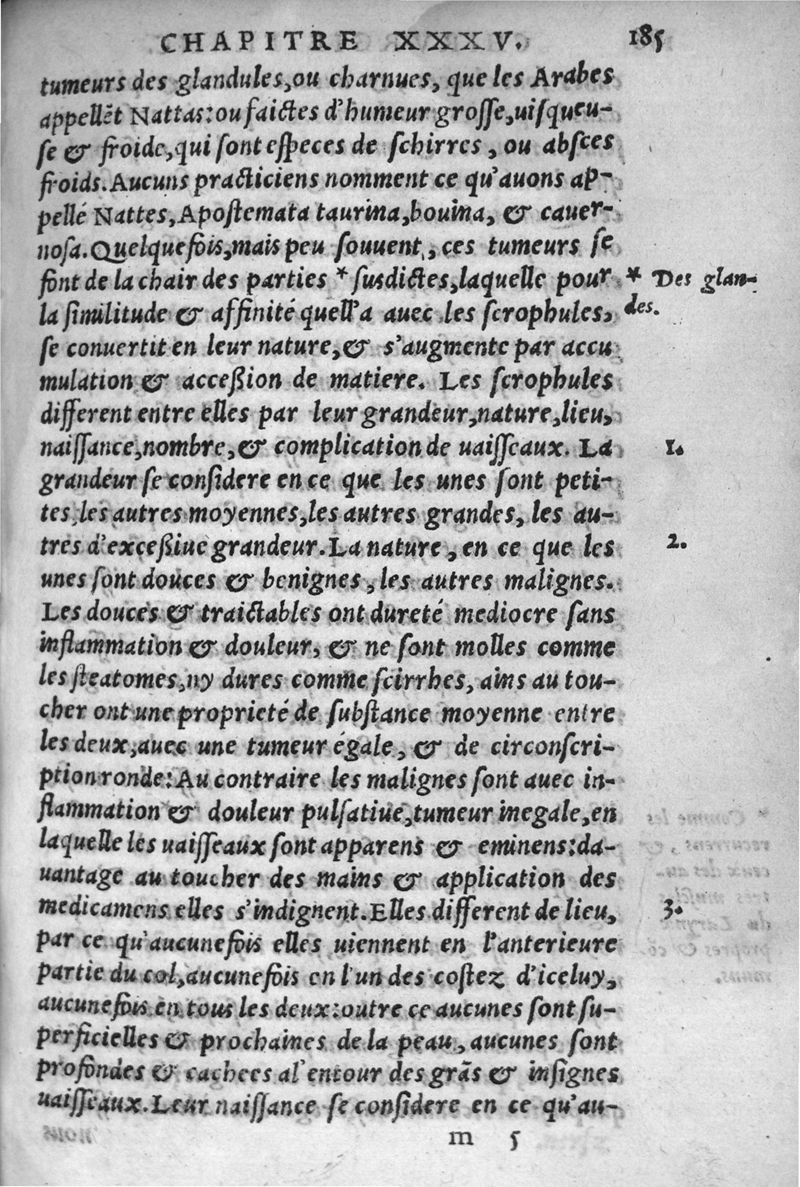 CHAPITRE XXXV. 185
tumeurs des glandules, ou charnues, que les Arabes
appellẽt Nattas: ou faictes d'humeur grosse, uisqueu-
se & froide, qui sont especes de schirres, ou absces
froids. Aucuns practiciens nomment ce qu'auons ap-
pellé Nattes, Apostemata taurina, bouina, & cauer-
nosa. Quelquefois, mais peu souuent, ces tumeurs se
font de la chair des parties * susdictes, laquelle pour
* Des glan-
des.
la similitude & affinité quell'a auec les scrophules,
se conuertit en leur nature, & s'augmente par accu
mulation & accession de matiere. Les scrophules
different entre elles par leur grandeur, nature, lieu,
naissance, nombre, & complication de uaisseaux. La
1.
grandeur se considere en ce que les unes sont peti-
tes, les autres moyennes, les autres grandes, les au-
tres d'excessiue grandeur. La nature, en ce que les
2.
unes sont douces & benignes, les autres malignes.
Les douces & traictables ont dureté mediocre sans
inflammation & douleur, & ne sont molles comme
les steatomes, ny dures comme scirrhes, ains au tou-
cher ont une proprieté de substance moyenne entre
les deux, auec une tumeur égale, & de circonscri-
ption ronde: Au contraire les malignes sont auec in-
flammation & douleur pulsatiue, tumeur inegale, en
laquelle les uaisseaux sont apparens & eminens: da-
uantage au toucher des mains & application des
medicamens elles s'indignent. Elles different de lieu,
3.
par ce qu'aucunefois elles uiennent en l'anterieure
partie du col, aucunefois en l'un des costez d'iceluy,
aucunefois en tous les deux: outre ce aucunes sont su-
perficielles & prochaines de la peau, aucunes sont
profondes & cachees al'entour des grãs & insignes
uaisseaux. Leur naissance se considere en ce qu'au-
m 5